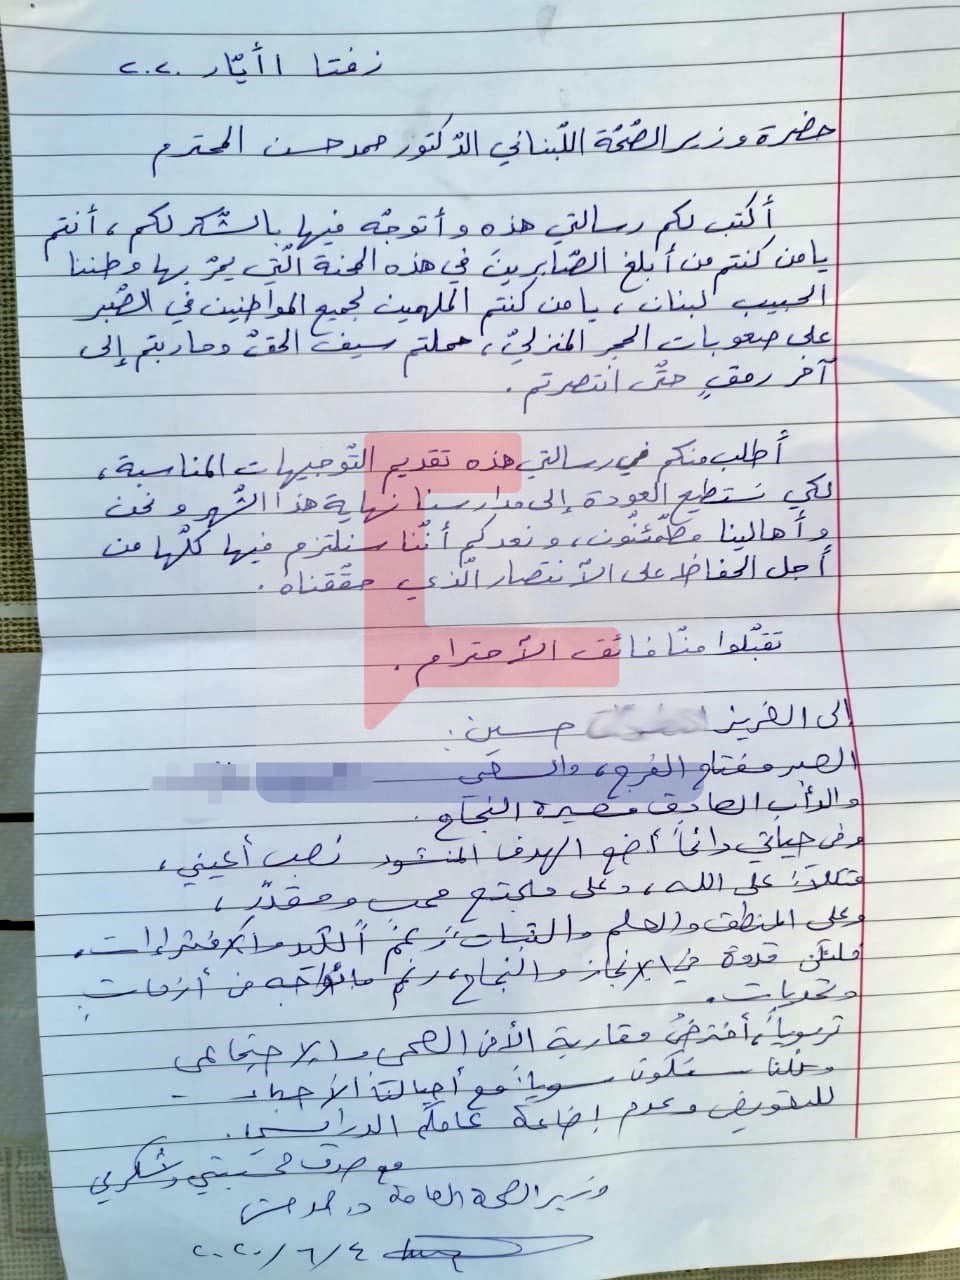 زفتا ١ أيّار ٢٠٢٠
حضرة وزير الصّحّة اللّبناني الدّكتور حمد حسن المحترم
أكتب لكم رسالتي هذه و أتوجّه فيها بالشّكر لكم، أنتم
يا من كنتم من أبلغ الصّابرين في هذه المحنة الّتي يمرّ بها وطننا
الحبيب لبنان، يا من كنتم الملهمين لجميع المواطنين في الصّبر
على صعوبات الحجر المنزليّ، حملتم سيف الحقّ وحاربتم إلى
آخر رمقٍ حتّى انتصرتم.
أطلب منكم في رسالتي هذه تقديم التّوجيهات المناسبة،
لكي نستطيع العودة إلى مدارسنا نهاية هذا الشّهر و نحن
و أهالينا مطمئنّون، و نعدكم أنّنا سنلتزم فيها كلّها من
أجل الحفاظ على الانتصار الّذي حقّقناه.
تقبّلوا منّا فائق الاحترام.
إلى العزيز حسين:
الصبر مفتاح الفرج،
والدأب الصادق مسيرة النجاح.
وفي حياتي دائماً أضع الهدف المنشود نصب أعيني،
متكلاً على الله، وعلى مجتمع محب ومقدّر،
وعلى المنطق والعلم والثبات رغم الكيد والافتراءات.
فلنكن قدوة في الإنجاز والنجاح، رغم ما نواجه من أزمات
وتحديات.
تربوياً، أفترض مقاربة الأمن الصحي والاجتماعي
وكلنا سنكون سوياً مع أجيالنا الأحباء -
للتعويض وعدم إضاعة عامكم الدراسي.
مع صدق محبتي وشكري
وزير الصحة العامة د. حمد حسن
٢٠٢٠/٦/٤